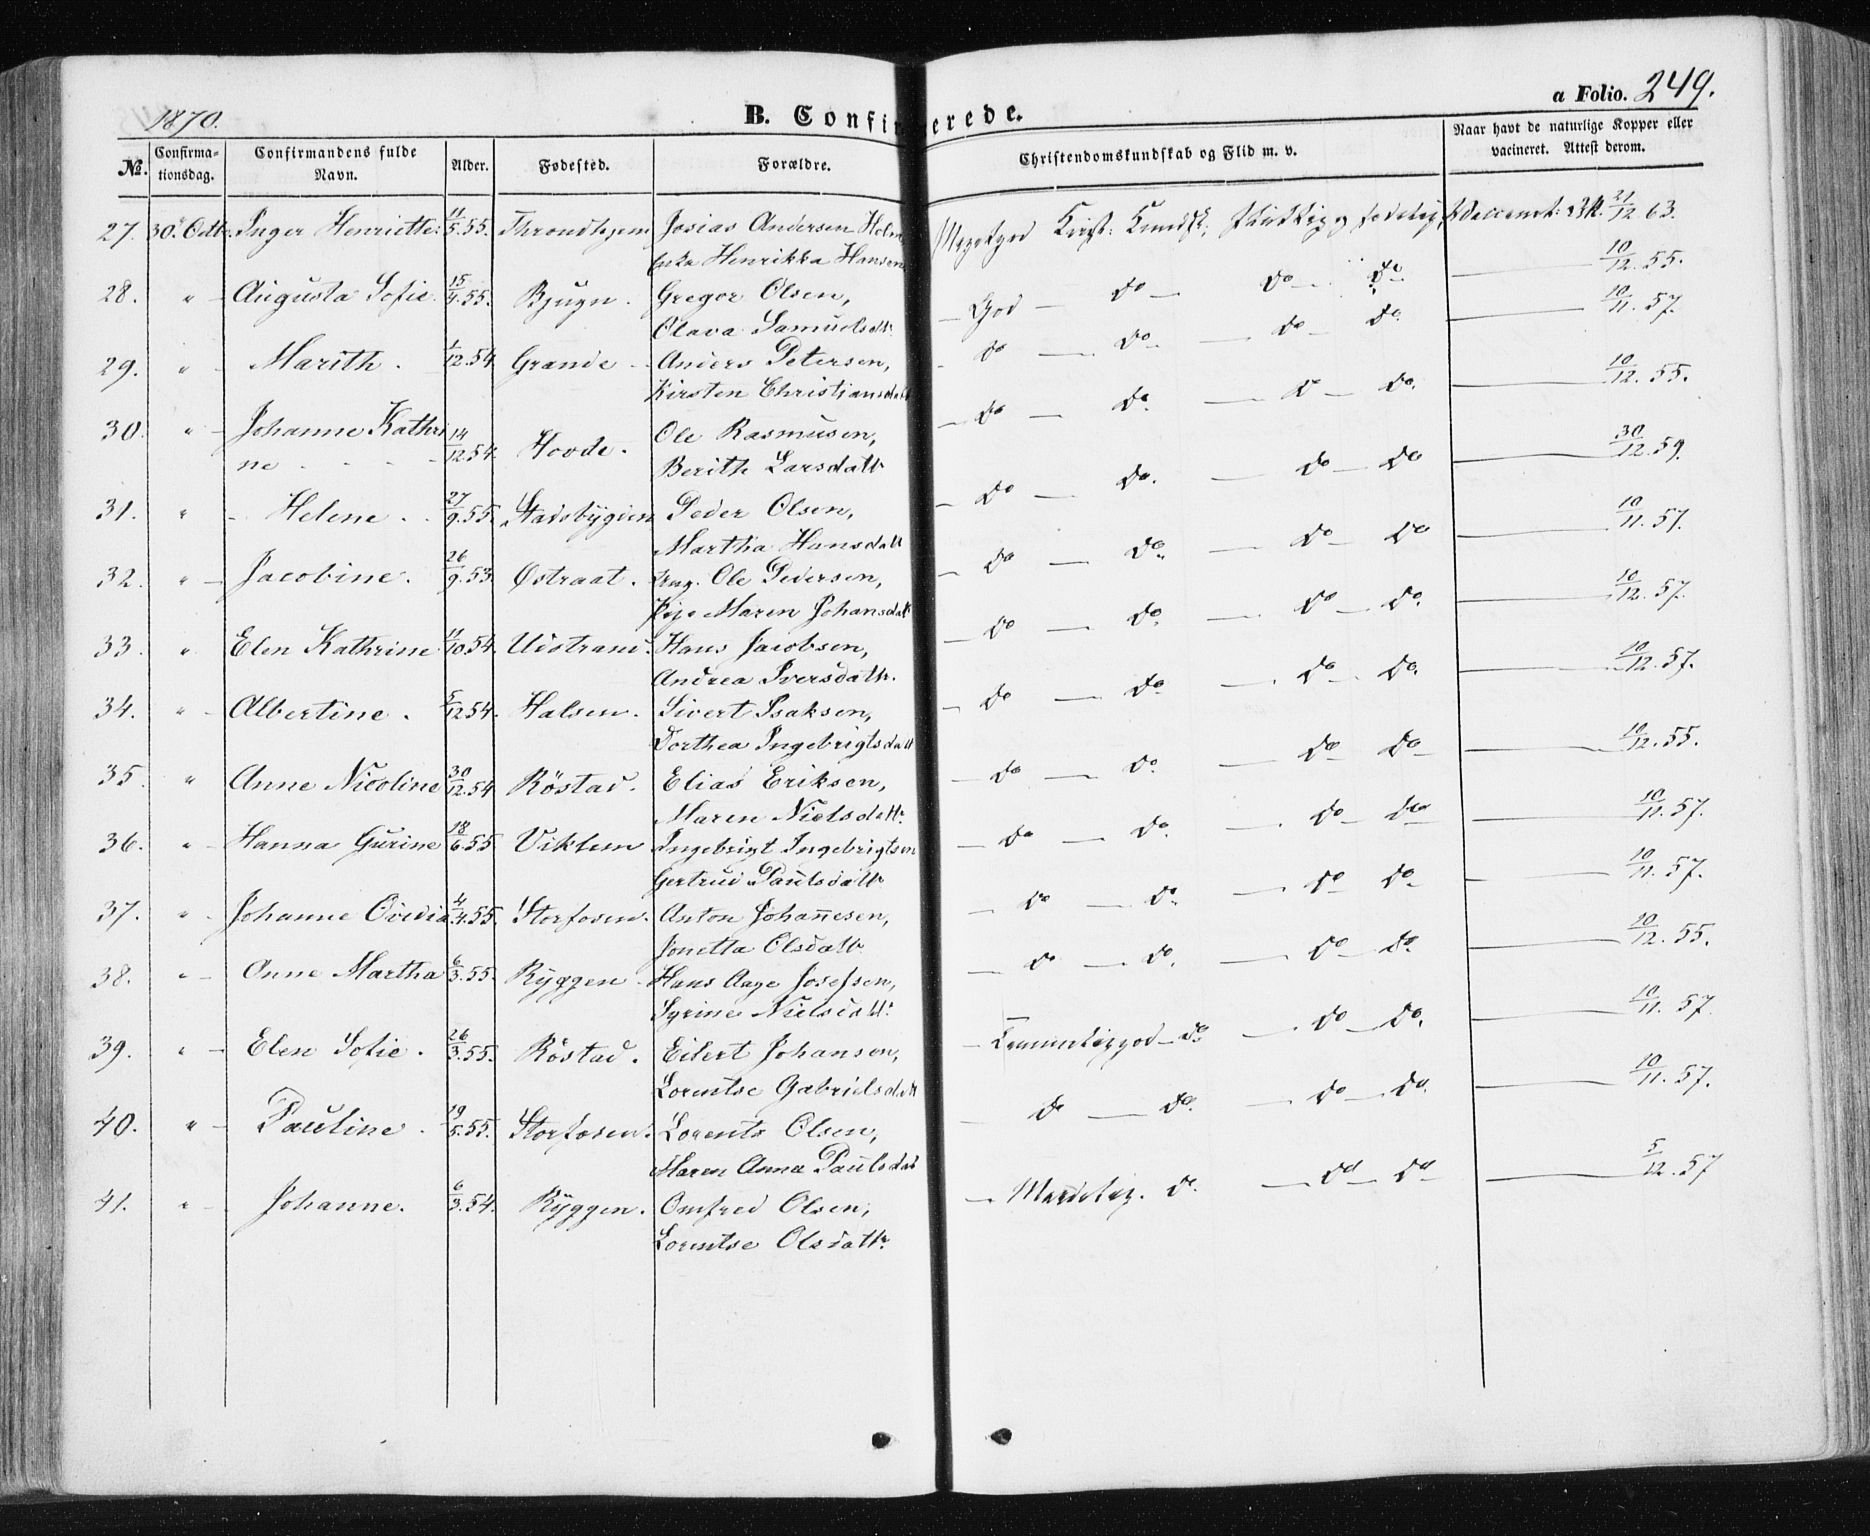 1870.
B. Confirmerede.
a Folio. 249.
No. Confirmationsdag. Confirmandens fulde Navn. Alder. Fødested. Forældre. Christendomskundskab og Flid m. v. Naar havt de naturlige Kopper eller vacineret. Attest derom.
27. 30. Octb. Inger Henriette: 11/5.55. Throndhjem Josias Andersen Holm Megetgod Christ: Kundsk: 21/12 63.
Henrikka Hansen
28. " Augusta Sofie. 15/4.55. Bjugn. Gregor Olsen, God — do — do — do 10/12.55.
Olava Samuelsdtr
29. " Marith. 1/12.54 Grande Anders Petersen, do — do. — do — do. 10/11.57.
Kirsten Christiansdatt
30. " Johanne Kathri 14/12.54. Hovde. Ole Rasmusen, do — do. — do — do. 10/12.55.
ne Berith Larsdattr
31. " Helene. 27/9.55. Stadsbygden Peder Olsen, do — do. — do — do 30/12.59.
Martha Hansdatt
32. " Jacobine. 26/9.53. Østraat. Ung. Ole Pedersen, do — do. — do — do 10/11.57.
Pige Maren Johansdatt
33. " Elen Kathrine 11/10.54. Udstrand. Hans Jacobsen, do — do. — do — do. 10/12.57.
Andrea Iversdattr.
34. " Albertine. 5/12.54. Halsen. Sivert Isaksen, do — do — do — do. 10/12.57.
Dorthea Ingebrigtsdatt
35. " Anne Nicoline 30/12.54 Röstad. Elias Eriksen, do — do. — do — do 10/12.55.
Maren Nielsdattr.
36. " Hanna Gurine 18/6.55 Viklem Ingebrigt Ingebrigtsen do — do. — do — do 10/11.57.
Gertrud Paulsdattr
37. " Johanne Ovidia 4/4.55. Storfosen. Anton Johannesen, do — do. — do — do. 10/11.57.
Jonetta Olsdattr
38. " Anne Martha 6/3.55. Ryggen Hans Aage Josefsen, do — do. — do — do. 20/12.55.
Syrine Nielsdattr
39. " Elen Sofie. 26/3.55. Röstad. Eilert Johansen, Temmeliggod — do. — do — do. 10/11.57.
Lorentse Gabrielsdatt
40. " Pauline. 19/5.55. Storfosen. Lorents Olsen, do — do. — do — do. 10/11.57.
Maren Anna Paulsdat
41. " Johanne. 6/3.54. Ryggen. Omfred Olsen, Maadelig. do. — do — do 5/12.57
Lorentse Olsdattr.